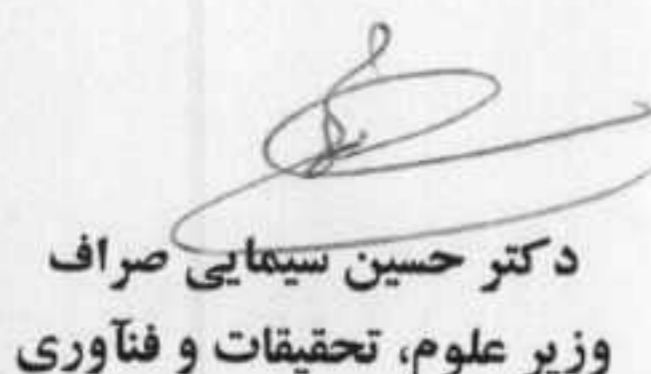 دکتر حسین سیمایی صراف
وزیر علوم، تحقیقات و فنآوری